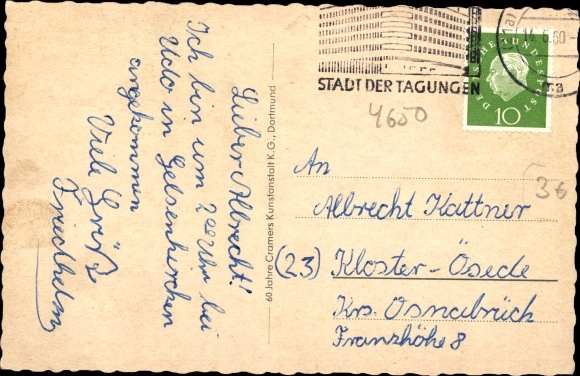 Lieber Albrecht!
Ich bin um 2⁰⁰ Uhr bei
Udo in Gelsenkirchen
angekommen
Viele Grüße
Friedhelm
60 Jahre Cramers Kunstanstalt K.G., Dortmund
STADT DER TAGUNGEN
14.6.60
DEUTSCHE BUNDESPOST
10
4650
36
An
Albrecht Kattner
(23) Kloster-Ösede
Krs. Osnabrück
Franzhöhe 8